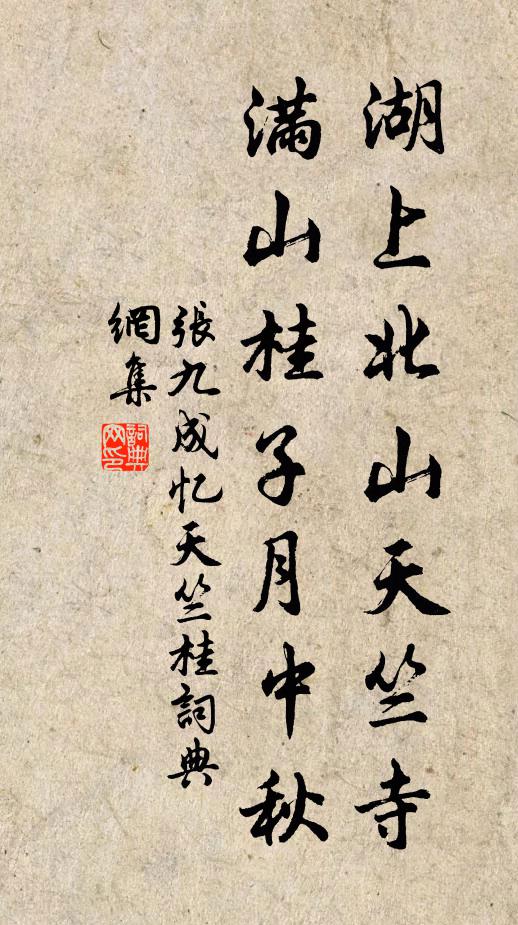 湖上北山天竺寺
滿山桂子月中秋
張九成忆天竺桂詞典
網集
詞典網印